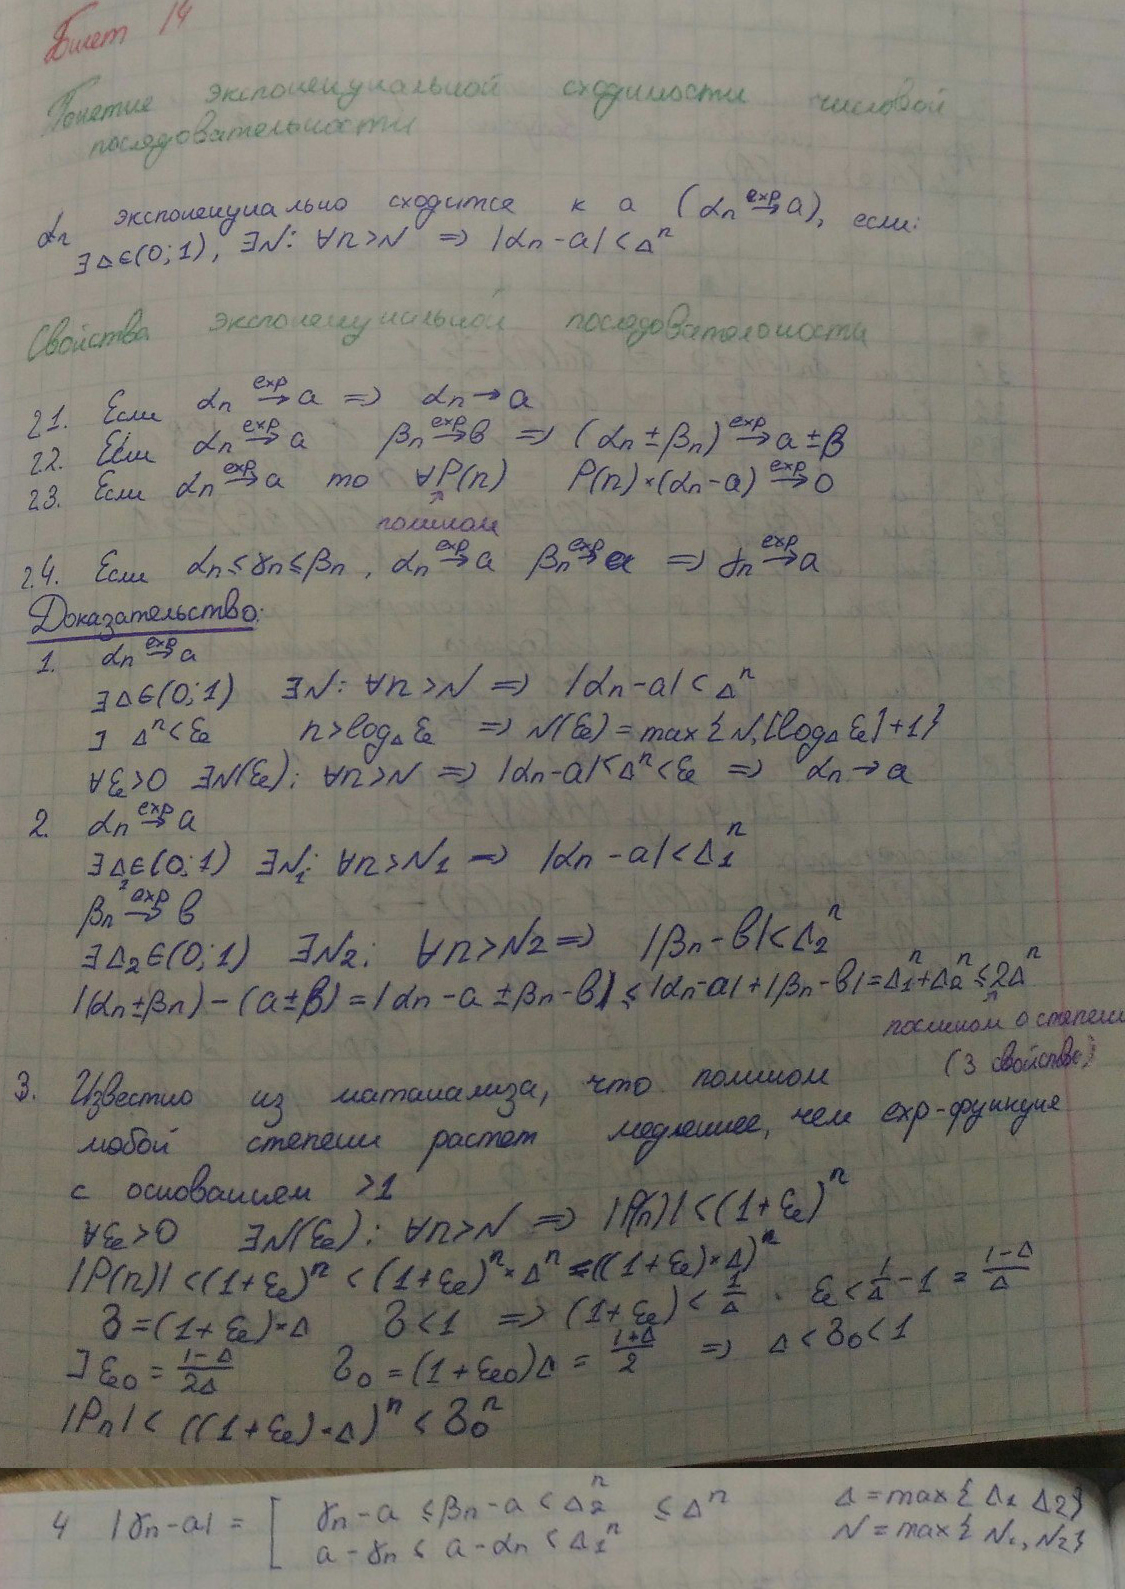 Билет 14
Понятие экспоненциальной сходимости числовой
последовательности
αn экспоненциально сходится к a (αn exp→ a), если:
∃Δ∈(0;1), ∃N: ∀n>N => |αn-a|<Δ^n
Свойства экспоненциальной последовательности
21. Если αn exp→ a => αn→a
22. Если αn exp→ a βn exp→ b => (αn±βn) exp→ a±β
23. Если αn exp→ a то ∀P(n) P(n)×(αn-a) exp→ 0
полином
24. Если αn≤γn≤βn, αn exp→ a βn exp→ a => γn exp→ a
Доказательство:
1. αn exp→ a
∃Δ∈(0;1) ∃N: ∀n>N => |αn-a|<Δ^n
∃ Δ^n<ε n>log_Δ ε => N(ε)=max{N,[log_Δ ε]+1}
∀ε>0 ∃N(ε): ∀n>N => |αn-a|<Δ^n<ε => αn→a
2. αn exp→ a
∃Δ1∈(0;1) ∃N1: ∀n>N1 => |αn-a|<Δ1^n
βn exp→ b
∃Δ2∈(0;1) ∃N2: ∀n>N2 => |βn-b|<Δ2^n
|(αn±βn)-(a±b)=|αn-a±βn-b|≤|αn-a|+|βn-b|=Δ1^n+Δ2^n≤2Δ^n
полином 0 степени
(3 свойство)
3. Известно из матанализа, что полином
любой степени растет медленнее, чем exp-функция
с основанием >1
∀ε>0 ∃N(ε): ∀n>N => |P(n)|<(1+ε)^n
|P(n)|<(1+ε)^n<(1+ε)^n×Δ^n=((1+ε)×Δ)^n
δ=(1+ε)×Δ δ<1 => (1+ε)<1/Δ . ε<1/Δ-1=(1-Δ)/Δ
∃ε0=(1-Δ)/2Δ δ0=(1+ε0)Δ=(1+Δ)/2 => Δ<δ0<1
|Pn|<((1+ε)×Δ)^n<δ0^n
4 |γn-a|=[ γn-a≤βn-a<Δ2^n ≤Δ^n Δ=max{Δ1 Δ2}
a-γn≤a-αn<Δ1^n N=max{N1,N2}